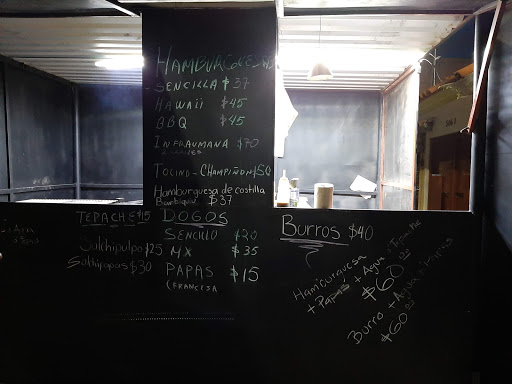 HAMBURGUESAS
- SENCILLA $37
HAWAII $45
BBQ $45
INFRAUMANA $70
TOCINO - CHAMPIÑON $50
Hamburguesa de costilla
$37
TEPACHE $15
Salchipulpo $25
Salchipapas $30
DOGOS
SENCILLO $20
MX $35
PAPAS $15
(FRANCESA
BURROS $40
HAMBURGUESA
+ Papas + Agua o Tepache
$60
BURRO + Agua
$60